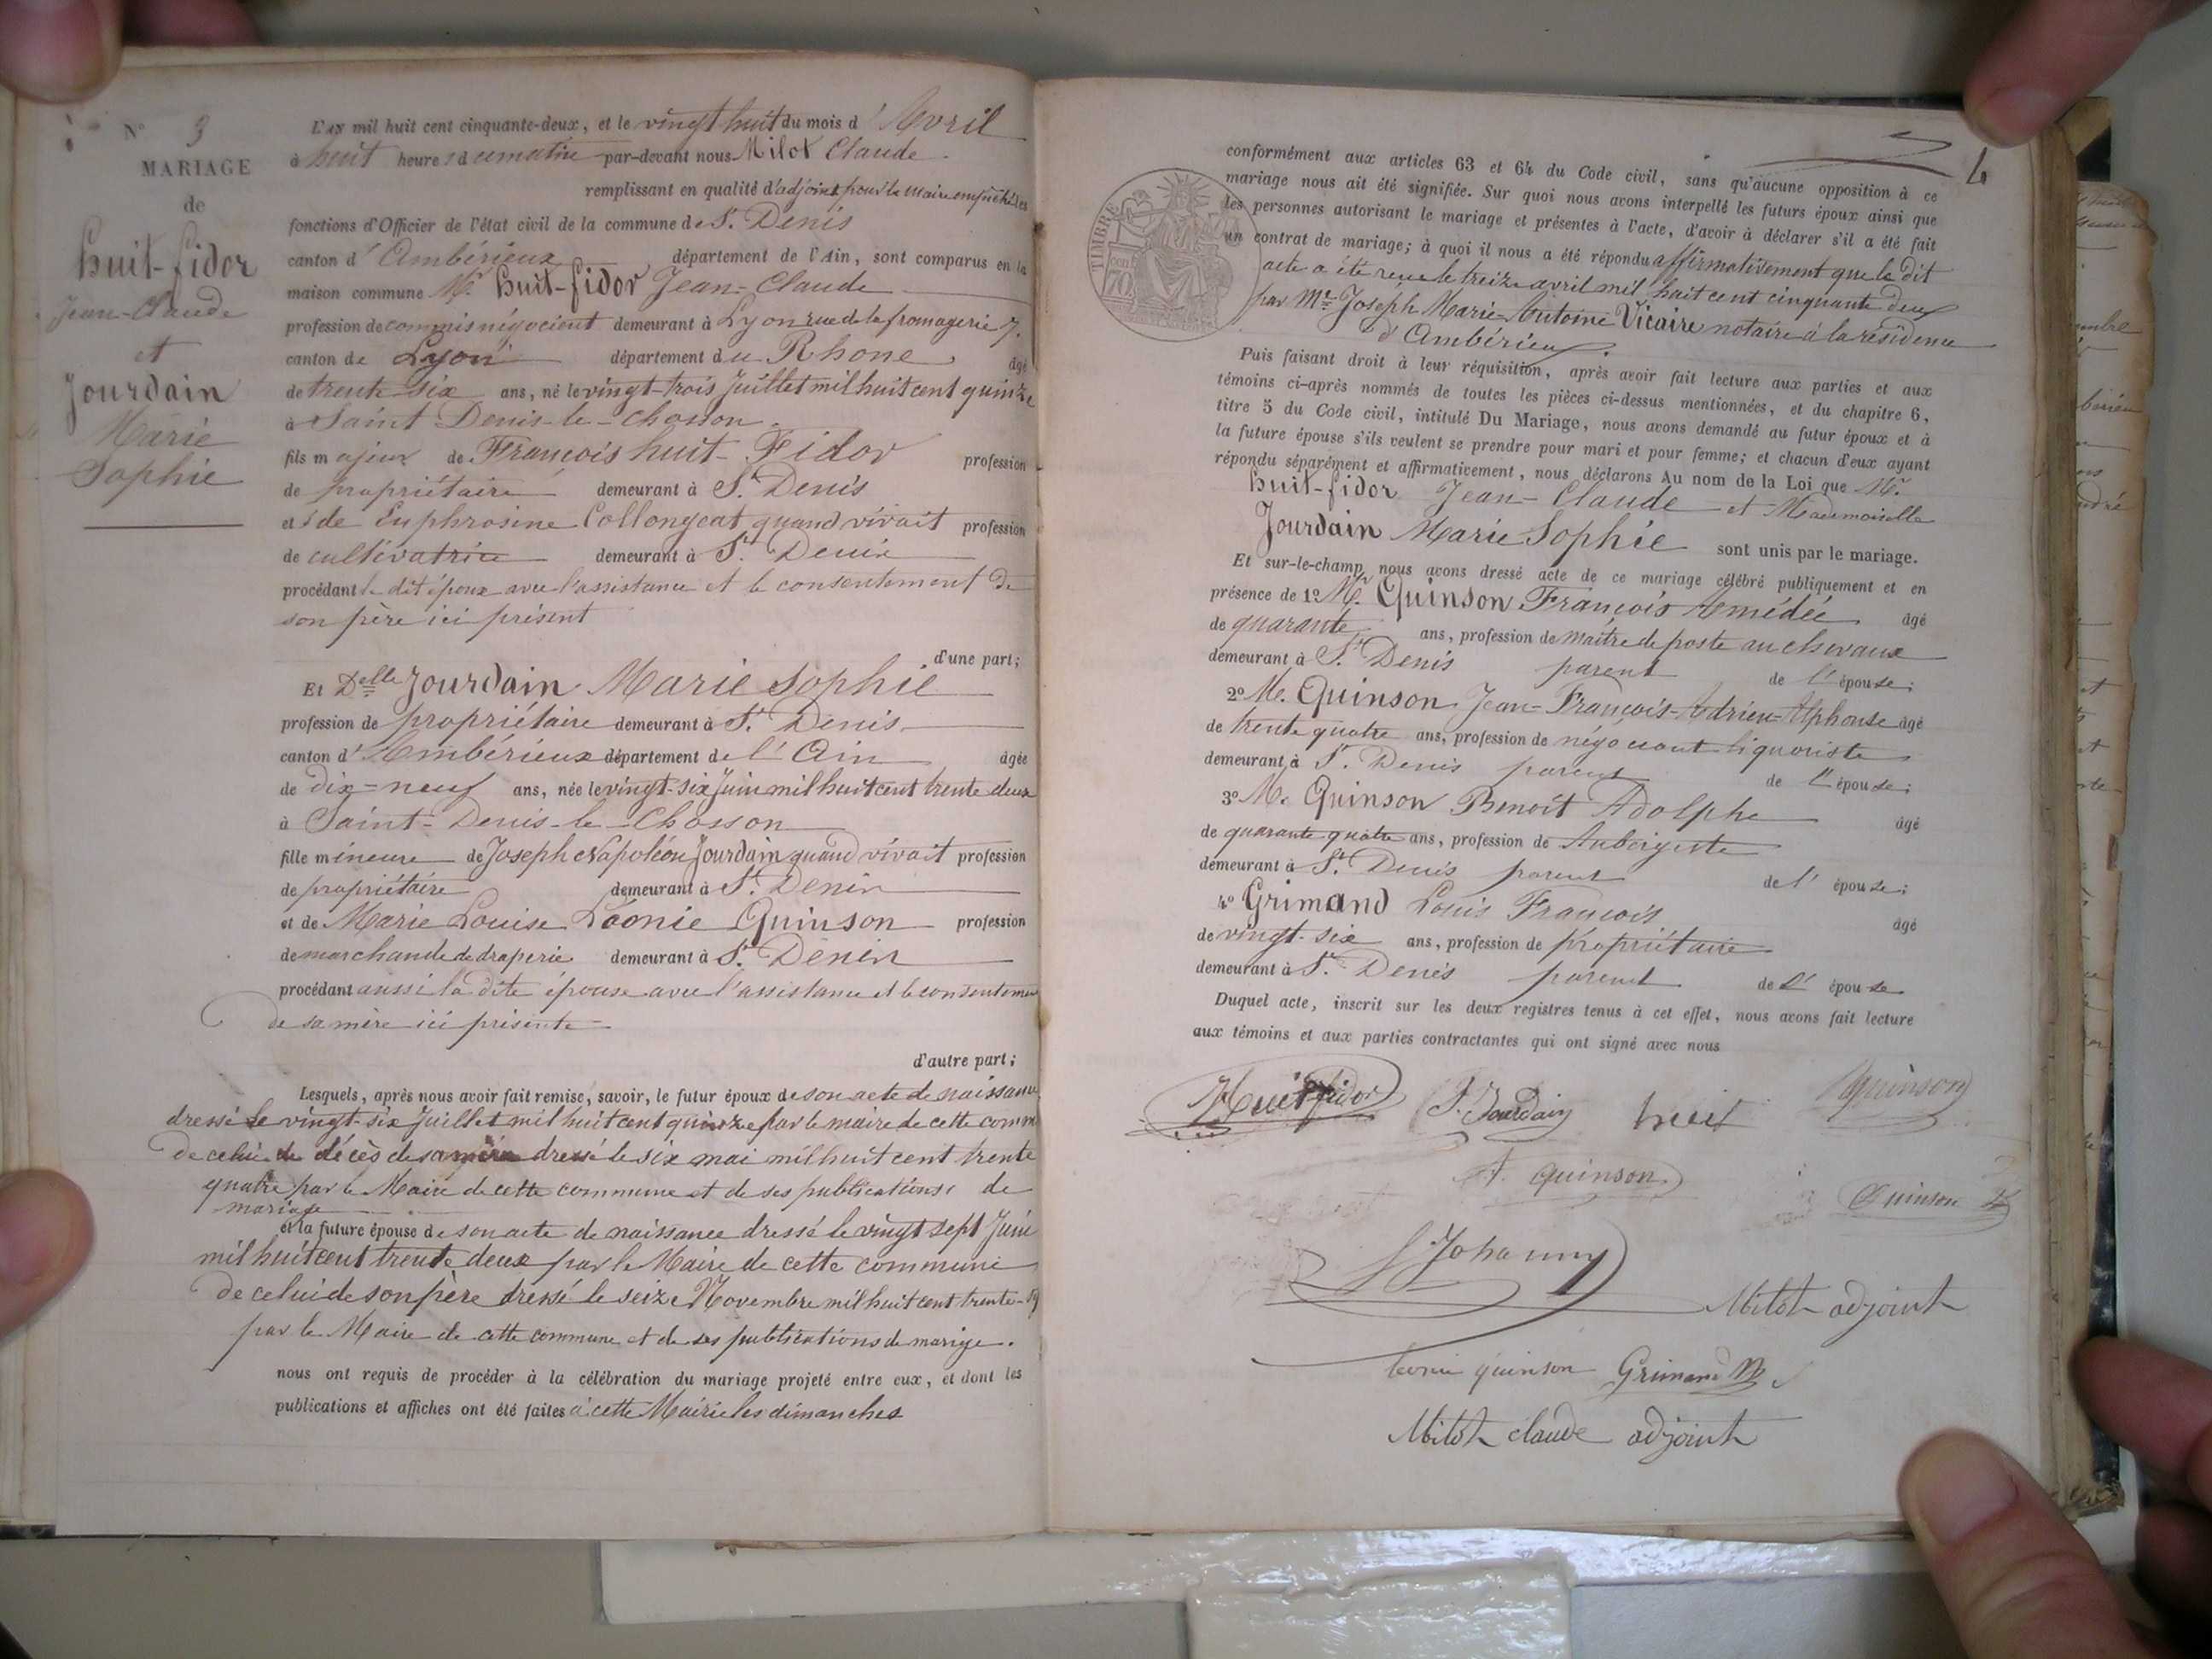 N° 3
MARIAGE
de
huit-fidor
Jean-Claude
et
Jourdain
Marie
Sophie
L'an mil huit cent cinquante-deux, et le vingt huit du mois d'Avril
à huit heures du matin par-devant nous Milot Claude.
remplissant en qualité d'adjoint pour le maire empêché les
fonctions d'Officier de l'état civil de la commune de St. Denis
canton d'Ambérieux département de l'Ain, sont comparus en la
maison commune Mr. huit-fidor Jean-Claude
profession de commis négociant demeurant à Lyon rue de la fromagerie 7.
canton de Lyon département du Rhone âgé
de trente six ans, né le vingt-trois Juillet mil huit cent quinze
à Saint Denis-le-Chosson.
fils majeur de François huit-Fidor profession
de propriétaire demeurant à St. Denis
et de Euphrosine Collongeat quand vivait profession
de cultivatrice demeurant à St. Denis
procédant le dit époux avec l'assistance et le consentement de
son père ici présent
d'une part;
Et Delle Jourdain Marie Sophie
profession de propriétaire demeurant à St. Denis
canton d'Ambérieux département de l'Ain âgée
de dix-neuf ans, née le vingt-six Juin mil huit cent trente deux
à Saint-Denis-le-Chosson
fille mineure de Joseph Napoléon Jourdain quand vivait profession
de propriétaire demeurant à St. Denis
et de Marie Louise Léonie Quinson profession
de marchande de draperie demeurant à St. Denis
procédant aussi la dite épouse avec l'assistance et le consentement
de sa mère ici présente
d'autre part;
Lesquels, après nous avoir fait remise, savoir, le futur époux de son acte de naissance
dressé le vingt-six Juillet mil huit cent quinze par le maire de cette comm
de celui de décès de sa mère dressé le six mai mil huit cent trente
quatre par le Maire de cette commune et de ses publications de
mariage
et la future épouse de son acte de naissance dressé le vingt sept Juin
mil huit cent trente deux par le Maire de cette commune
de celui de son père dressé le seize Novembre mil huit cent trente-
par le Maire de cette commune et de ses publications de mariage.
nous ont requis de procéder à la célébration du mariage projeté entre eux, et dont les
publications et affiches ont été faites à cette Mairie les dimanches
4
TIMBRE
70 cent
conformément aux articles 63 et 64 du Code civil, sans qu'aucune opposition à ce
mariage nous ait été signifiée. Sur quoi nous avons interpellé les futurs époux ainsi que
les personnes autorisant le mariage et présentes à l'acte, d'avoir à déclarer s'il a été fait
un contrat de mariage; à quoi il nous a été répondu affirmativement que le dit
acte a été reçu le treize avril mil huit cent cinquante deux
par Me Joseph Marie Antoine Vicaire notaire à la résidence
d'Ambérieux.
Puis faisant droit à leur réquisition, après avoir fait lecture aux parties et aux
témoins ci-après nommés de toutes les pièces ci-dessus mentionnées, et du chapitre 6,
titre 5 du Code civil, intitulé Du Mariage, nous avons demandé au futur époux et à
la future épouse s'ils veulent se prendre pour mari et pour femme; et chacun d'eux ayant
répondu séparément et affirmativement, nous déclarons Au nom de la Loi que Mr.
huit-fidor Jean-Claude et Mademoiselle
Jourdain Marie Sophie sont unis par le mariage.
Et sur-le-champ nous avons dressé acte de ce mariage célébré publiquement et en
présence de 1° Mr. Quinson François Amédée âgé
de quarante ans, profession de maitre de poste au chevaux
demeurant à St. Denis parent de l'épouse;
2° Mr. Quinson Jean-François-Adrien-Alphonse âgé
de trente quatre ans, profession de négociant liquoriste
demeurant à St. Denis parent de l'épouse;
3° Mr. Quinson Benoit Adolphe âgé
de quarante quatre ans, profession de Aubergiste
demeurant à St. Denis parent de l'épouse;
4° Grimand Louis François âgé
de vingt-six ans, profession de propriétaire
demeurant à St. Denis parent de l'épouse
Duquel acte, inscrit sur les deux registres tenus à cet effet, nous avons fait lecture
aux témoins et aux parties contractantes qui ont signé avec nous
Huit fidor S. Jourdain huit Quinson
A. Quinson Quinson
Johanny
Milot adjoint
leonie quinson Grimand
Milot claude adjoint